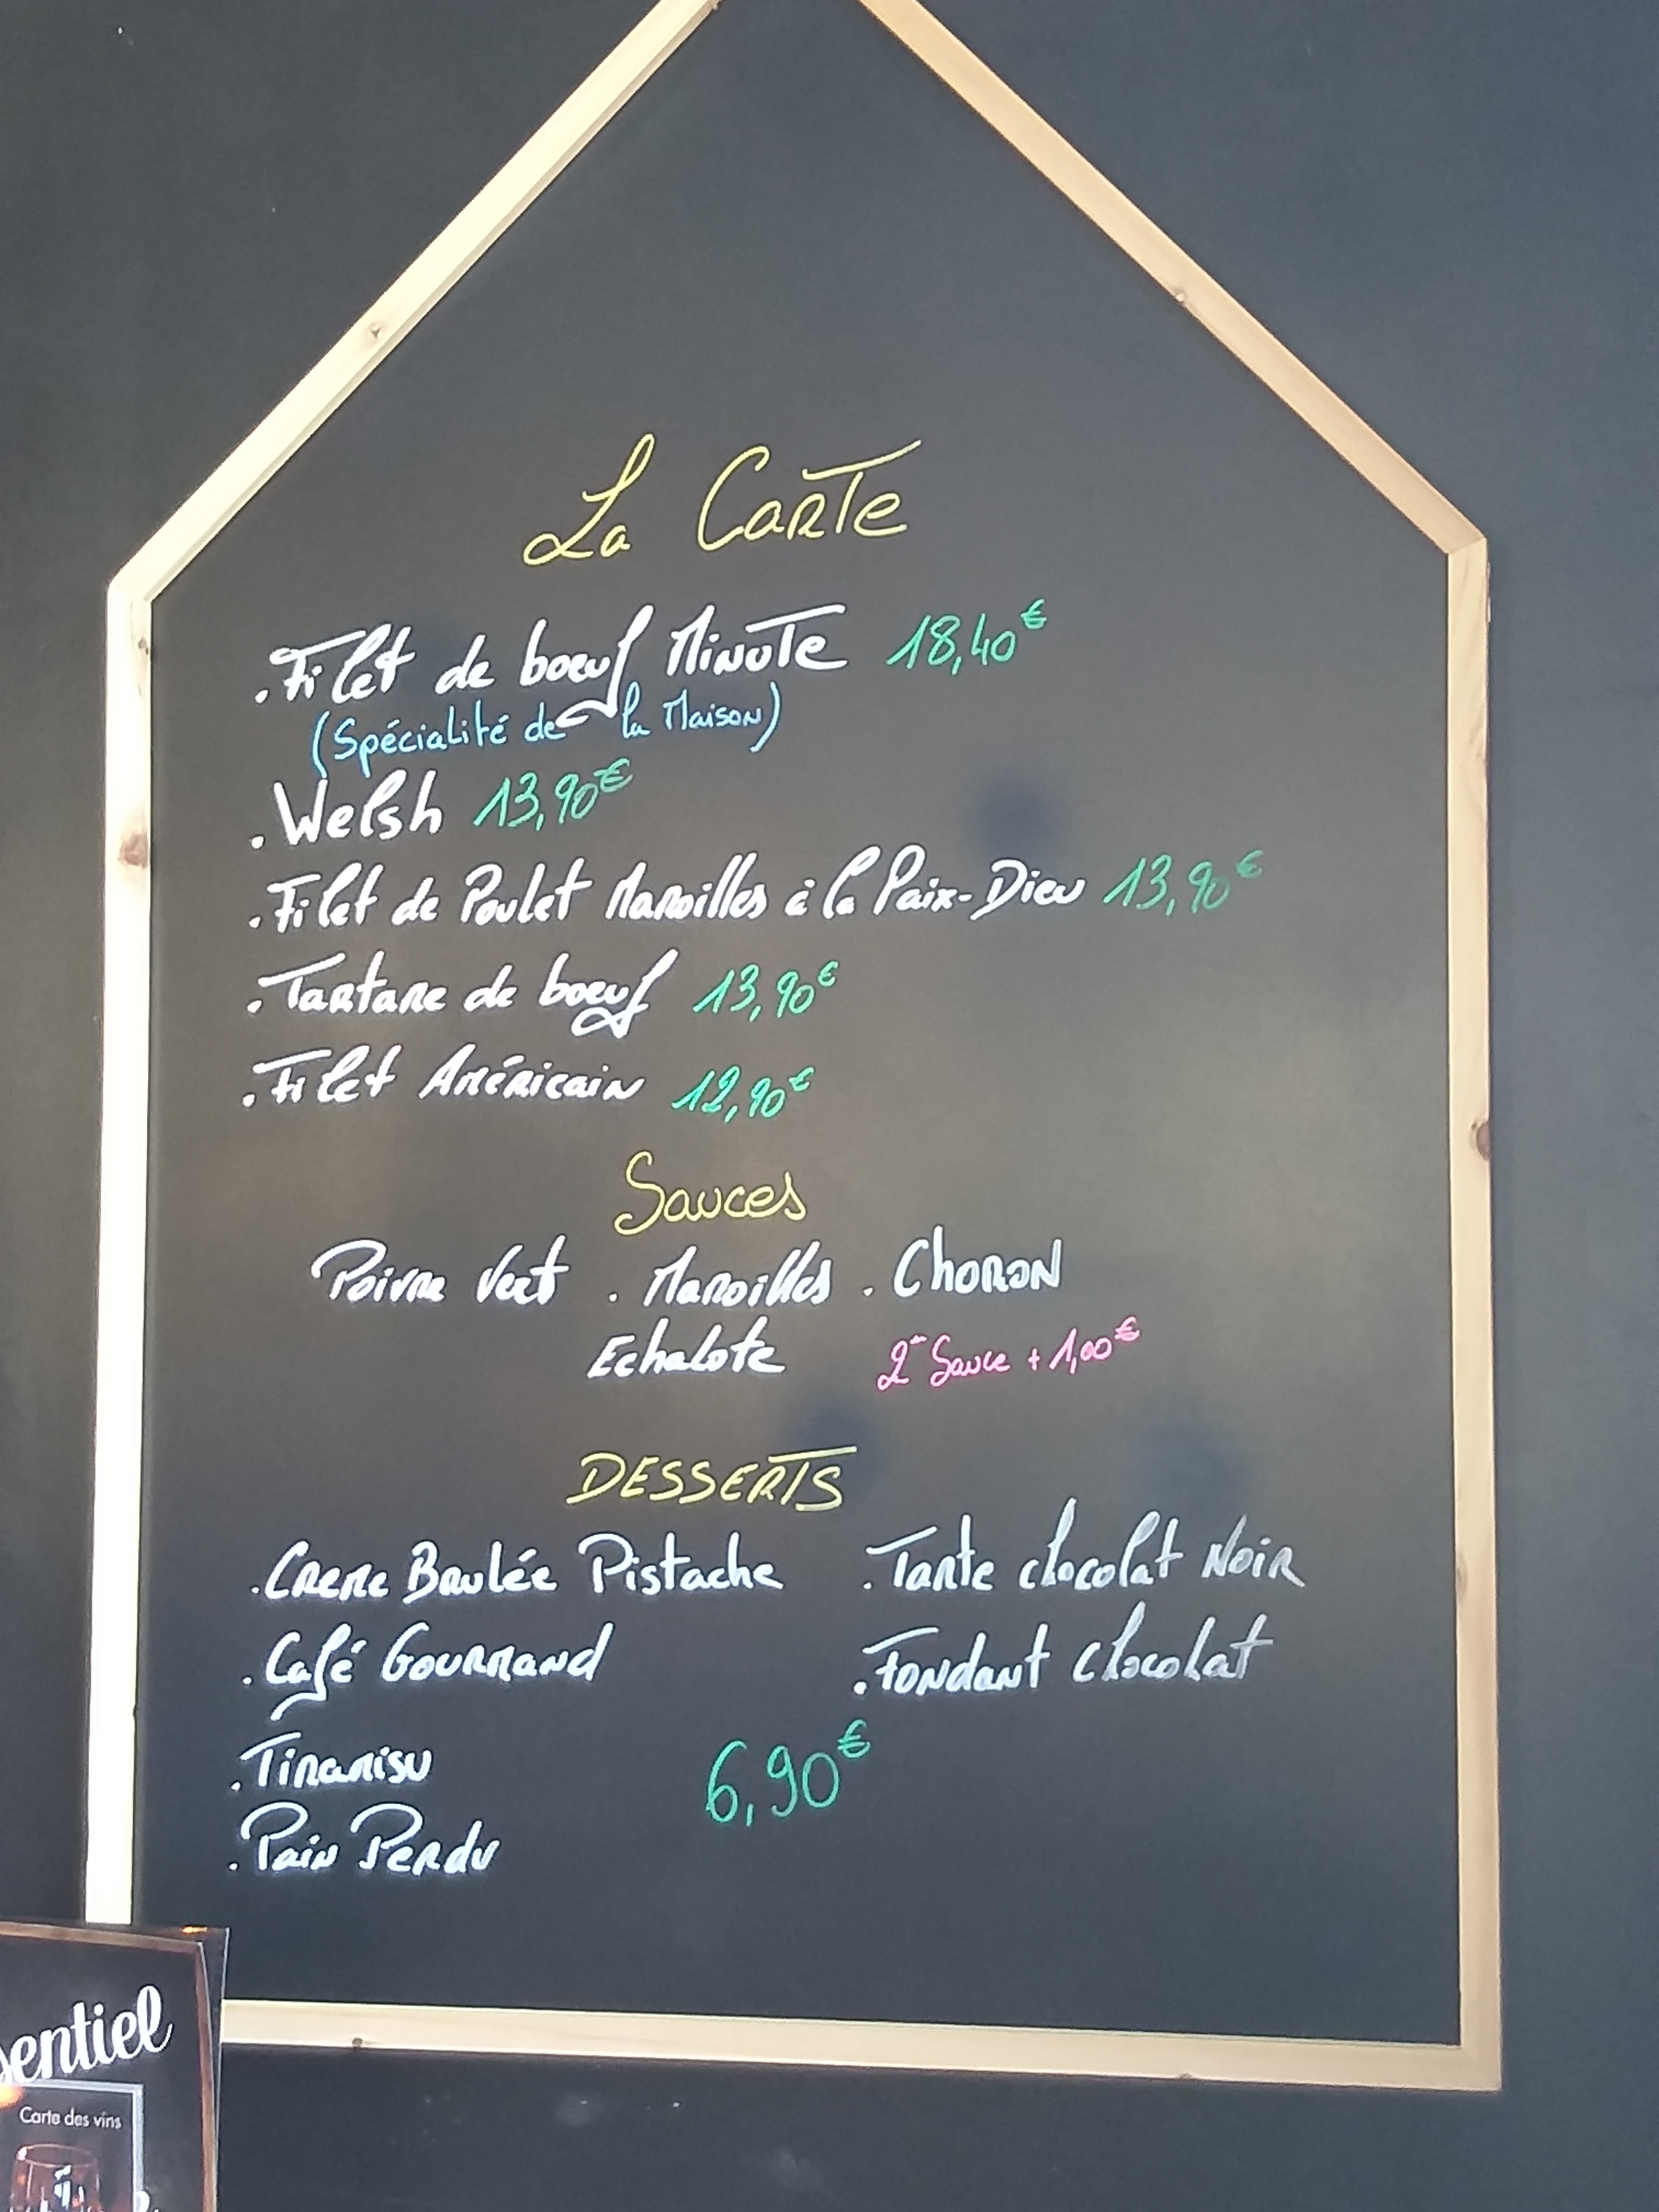 La Carte
. Filet de boeuf Minute 18,40€
(Spécialité de la Maison)
. Welsh 13,90€
. Filet de Poulet Maroilles à la Paix-Dieu 13,90€
. Tartare de boeuf 13,90€
. Filet Américain 12,90€
Sauces
Poivre Vert . Maroilles . Choron
Echalote 2e Sauce + 1,00€
DESSERTS
. Creme Brulée Pistache . Tarte chocolat Noir
. Café Gourmand . Fondant chocolat
. Tiramisu 6,90€
. Pain Perdu
sentiel
Carte des vins